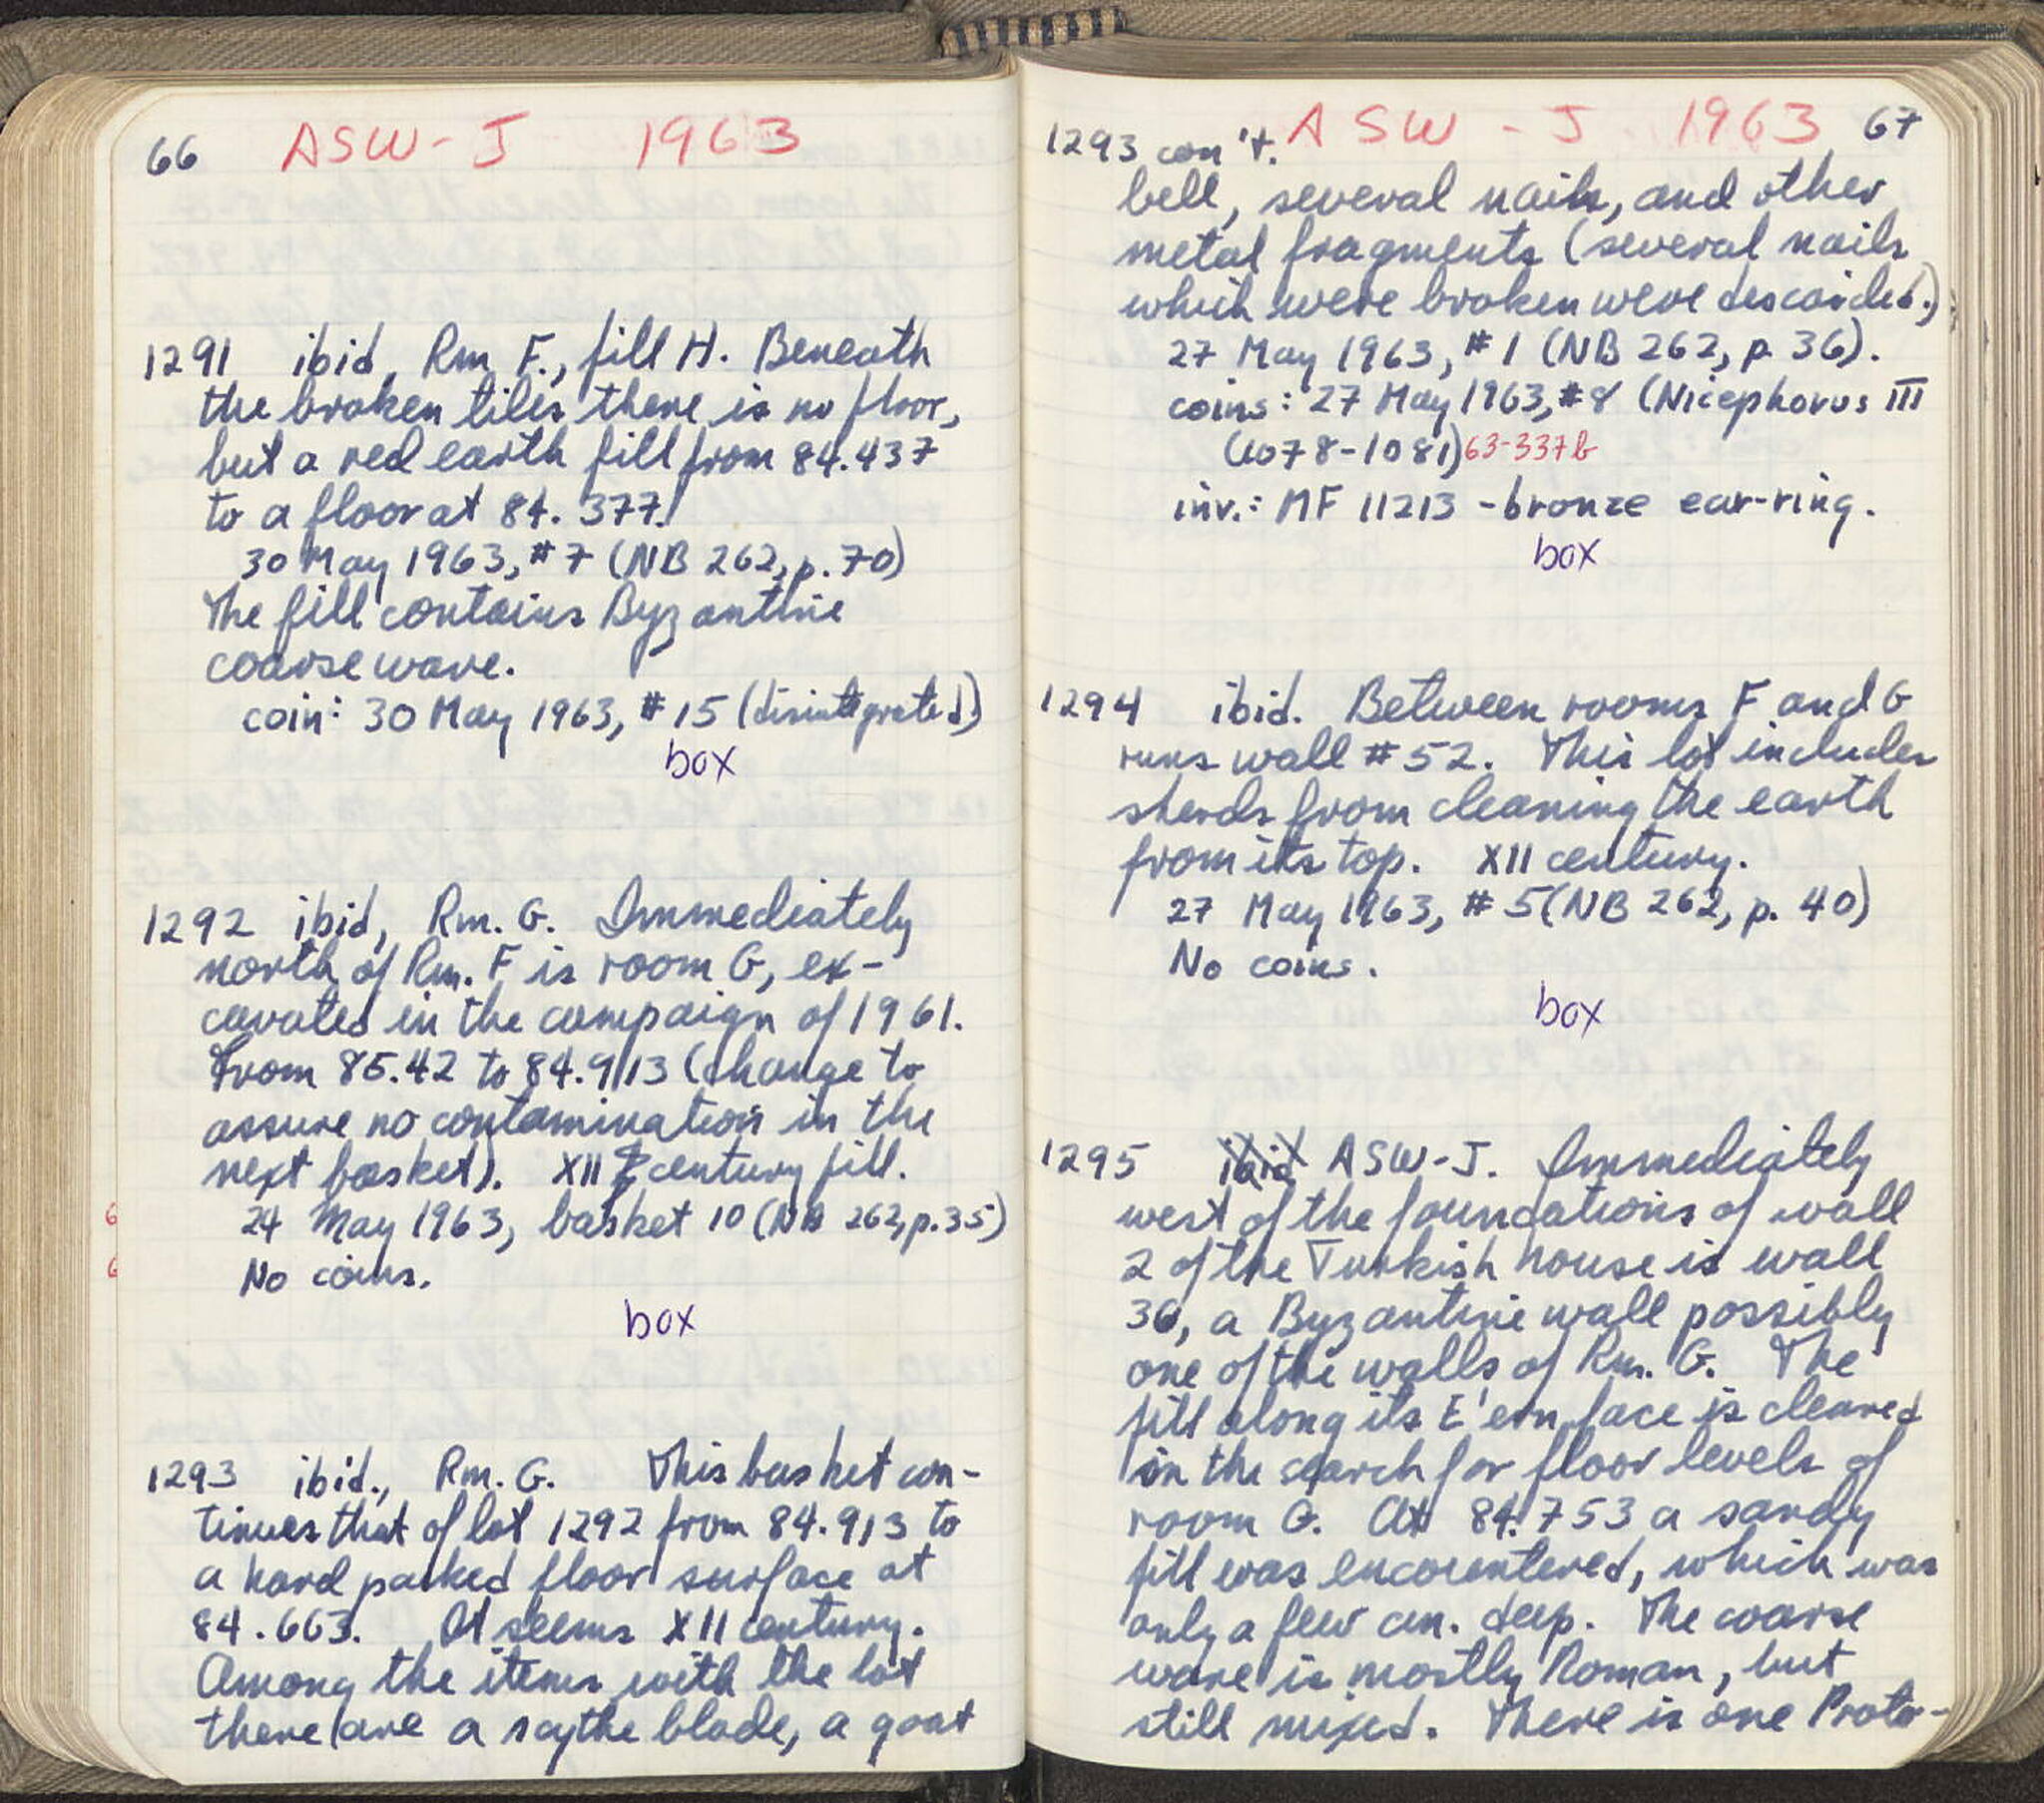 66 ASW-J 1963
1291 ibid, Rm F., fill H. Beneath
the broken tiles there is no floor,
but a red earth fill from 84.437
to a floor at 84.377.
30 May 1963, #7 (NB 262, p. 70)
The fill contains Byzantine
coarse ware.
coin: 30 May 1963, #15 (disintegrated)
box
1292 ibid, Rm. G. Immediately
north of Rm. F is room G, ex-
cavated in the campaign of 1961.
From 85.42 to 84.913 (change to
assure no contamination in the
next basket). XII century fill.
24 May 1963, basket 10 (NB 262, p. 35)
No coins.
box
1293 ibid., Rm. G. This basket con-
tinues that of lot 1292 from 84.913 to
a hard packed floor surface at
84.663. It seems XII century.
Among the items with the lot
there are a scythe blade, a goat
ASW-J 1963 67
1293 con't.
bell, several nails, and other
metal fragments (several nails
which were broken were descarded.)
27 May 1963, #1 (NB 262, p. 36).
coins: 27 May 1963, #8 (Nicephorus III
(1078-1081) 63-337b
inv.: MF 11213 - bronze ear-ring.
box
1294 ibid. Between rooms F and G
runs wall #52. This lot includes
sherds from cleaning the earth
from its top. XII century.
27 May 1963, #5 (NB 262, p. 40)
No coins.
box
1295 ibid ASW-J. Immediately
west of the foundations of wall
2 of the Turkish house is wall
36, a Byzantine wall possibly
one of the walls of Rm. G. The
fill along its E'ern face is cleared
in the search for floor levels of
room G. At 84.753 a sandy
fill was encountered, which was
only a few cm. deep. The coarse
ware is mostly Roman, but
still mixed. There is one Proto-